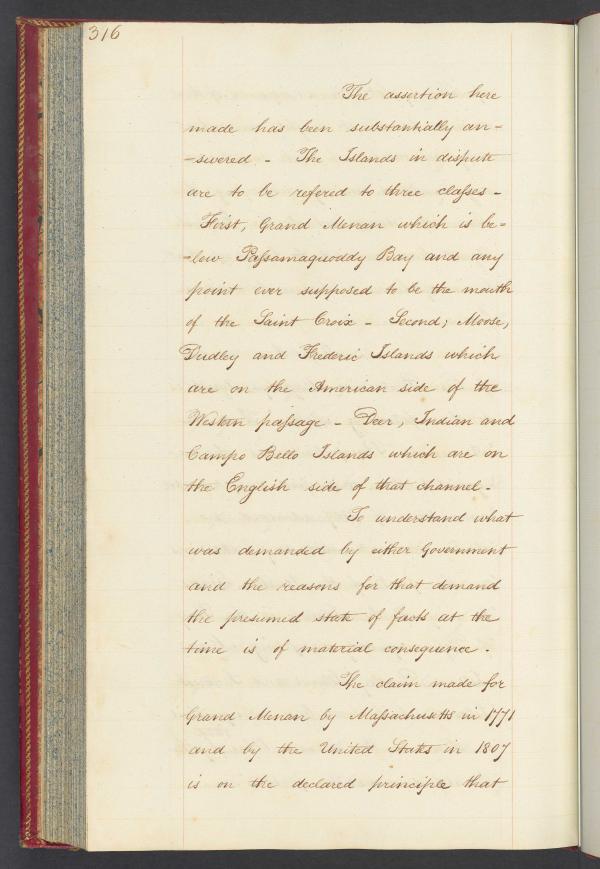 316
The assertion here
made has been substantially an-
-swered - The Islands in dispute
are to be refered to three classes -
First, Grand Menan which is be-
-low Passamaquoddy Bay and any
point ever supposed to be the mouth
of the Saint Croix - Second; Moose,
Dudley and Frederic Islands which
are on the American side of the
Western passage - Deer, Indian and
Campo Bello Islands which are on
the English side of that channel -
To understand what
was demanded by either Government
and the reasons for that demand
the presumed state of facts at the
time is of material consequence -
The claim made for
Grand Menan by Massachusetts in 1771
and by the United States in 1807
is on the declared principle that